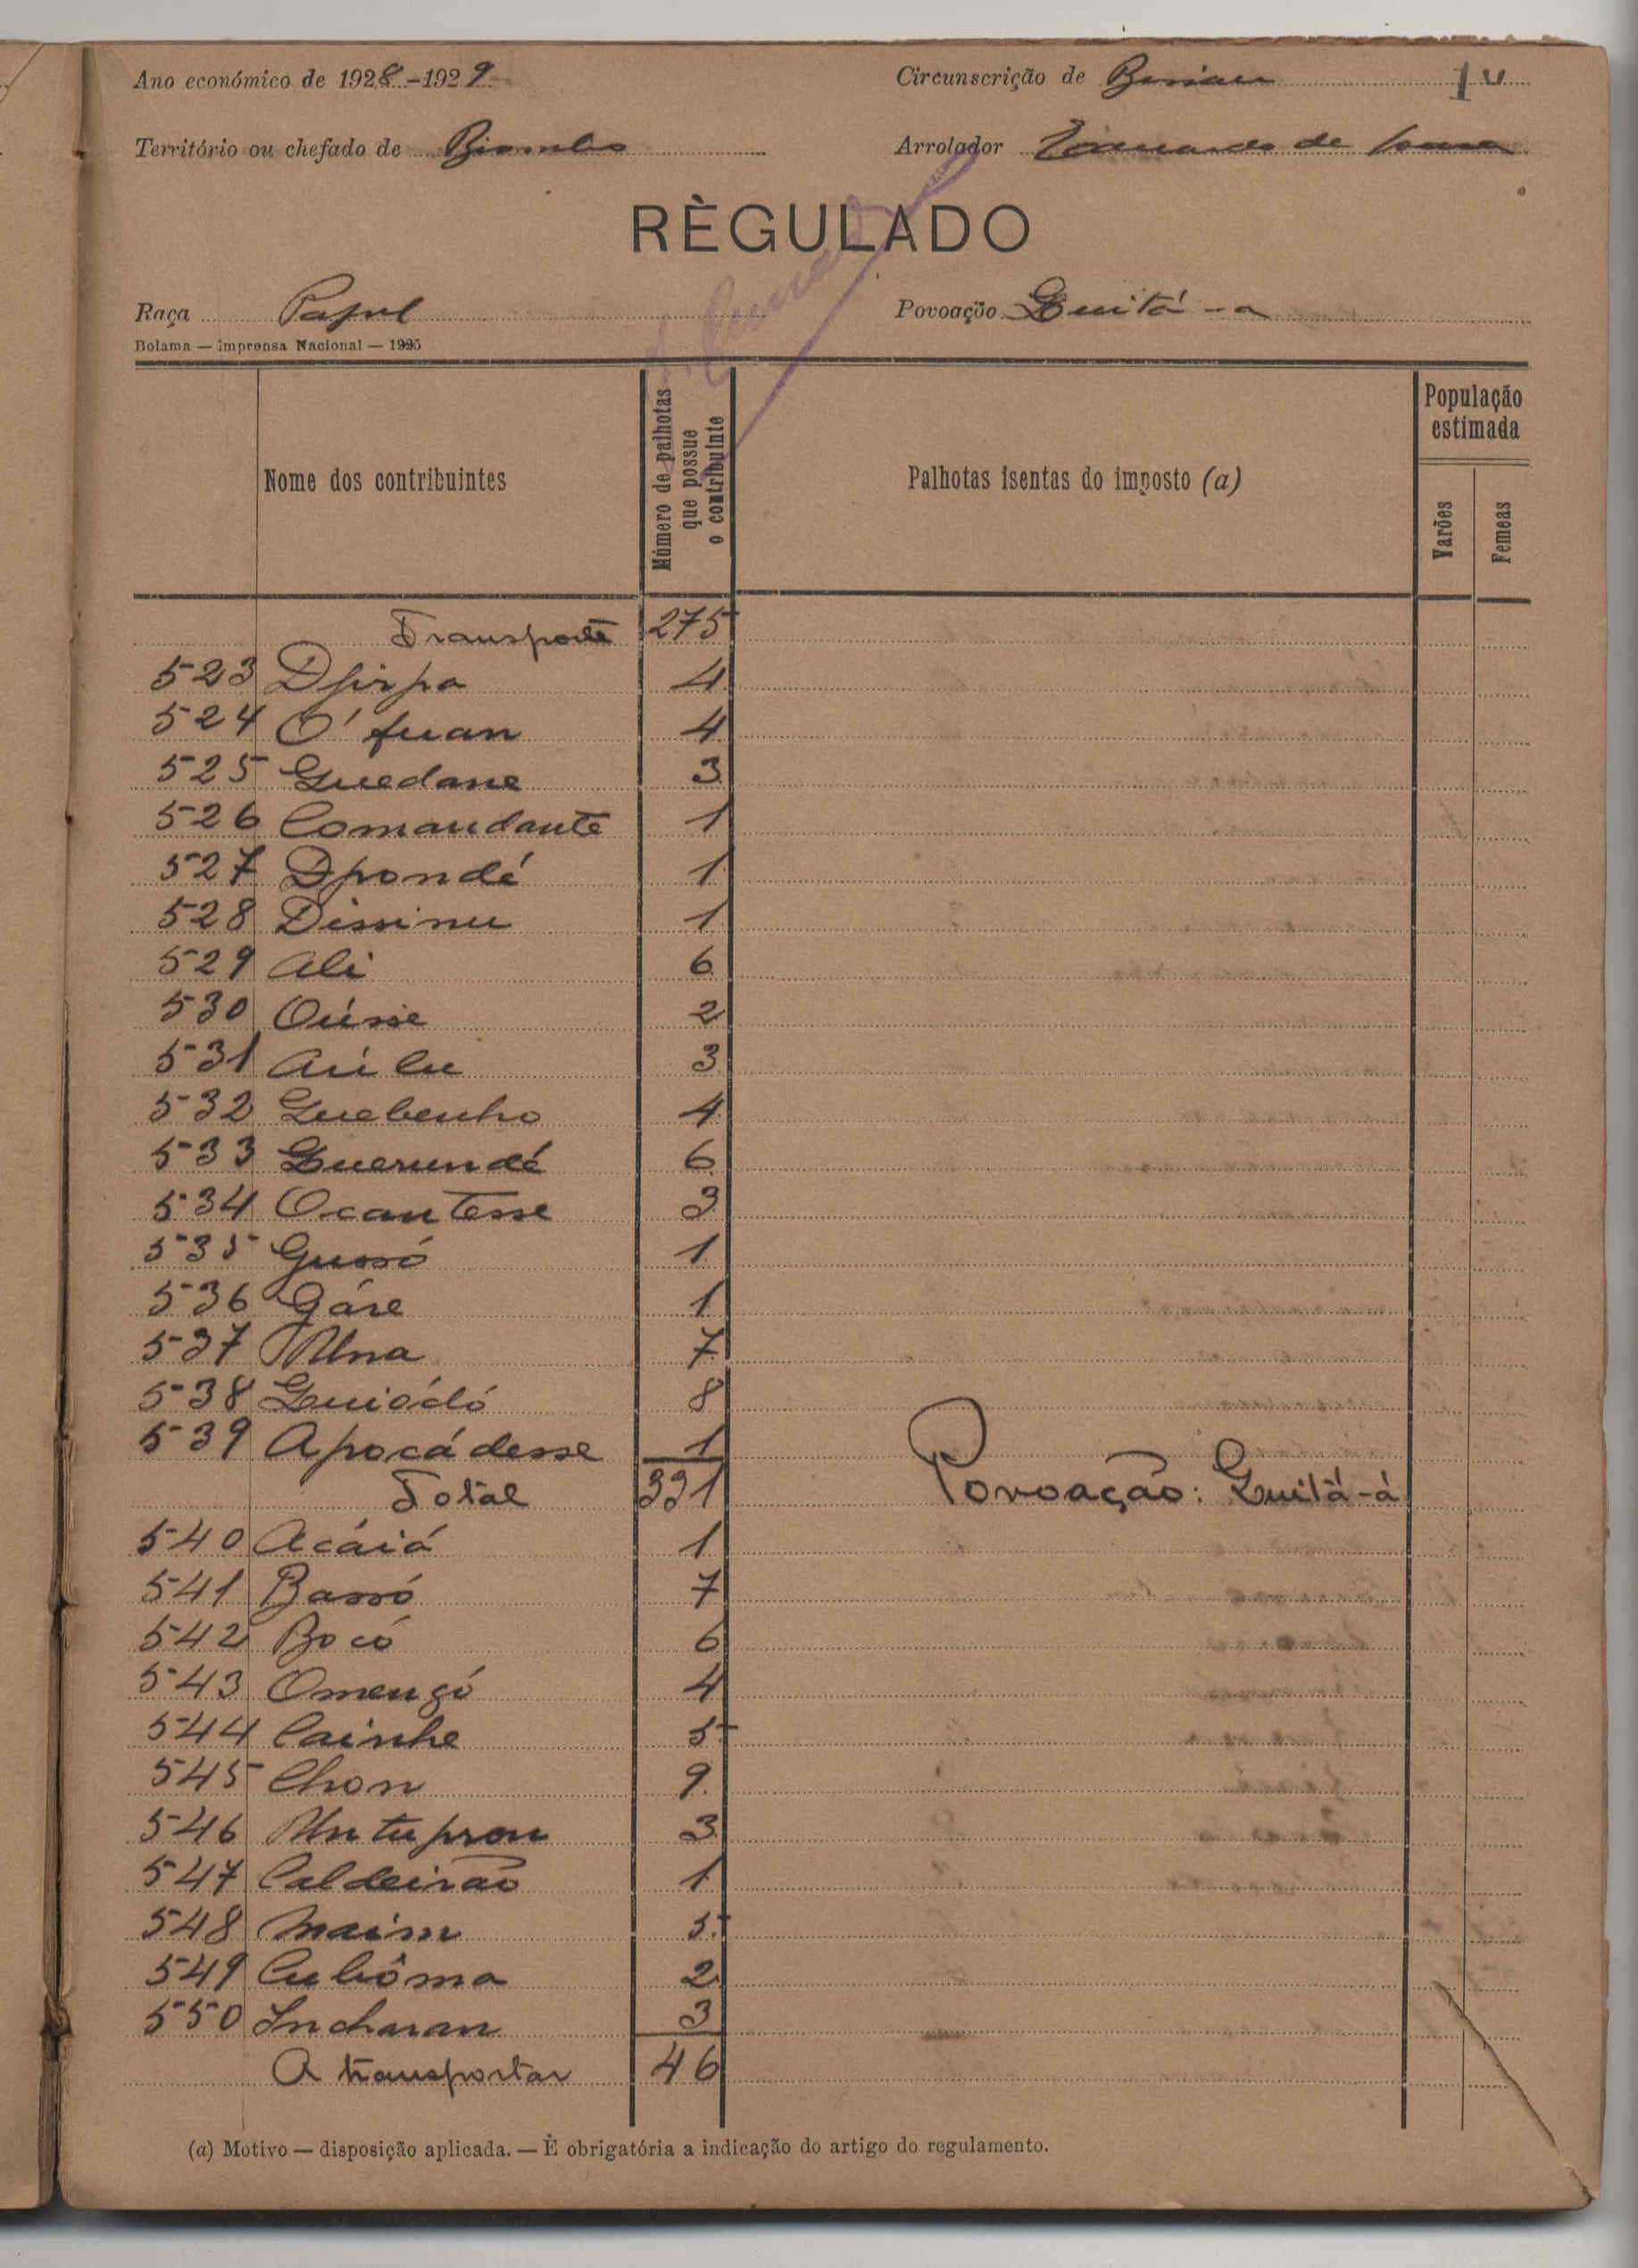 Ano económico de 1928-1929
Circunscrição de Bissau
Território ou chefado de Biombo
Arrolador Fernando de
RÈGULADO
Raça Papel
Povoação Guitá-a
Bolama — Imprensa Nacional — 1925
Nome dos contribuintes
Número de palhotas que possue o contribuinte
Palhotas isentas do imposto (a)
População estimada
Varões
Femeas
Transporte 275
523 Dfirpa 4
524 O'fuan 4
525 Guedane 3
526 Comandante 1
527 Dpondé 1
528 Dissinu 1
529 Ali 6
530 Oússe 2
531 3
532 Guebenho 4
533 Guerundé 6
534 Ocantesse 3
535 Gussó 1
536 Gáre 1
537 7
538 Guiódó 8
539 Apocádesse 1
Total 331 Povoação: Guitá-á
540 Acáiá 1
541 Bassó 7
542 Bocó 6
543 Omengó 4
544 Cainhe 5
545 Chon 9
546 3
547 Caldeirão 1
548 Maím 5
549 Cubôma 2
550 Incharan 3
A transportar 46
(a) Motivo — disposição aplicada. — È obrigatória a indicação do artigo do regulamento.